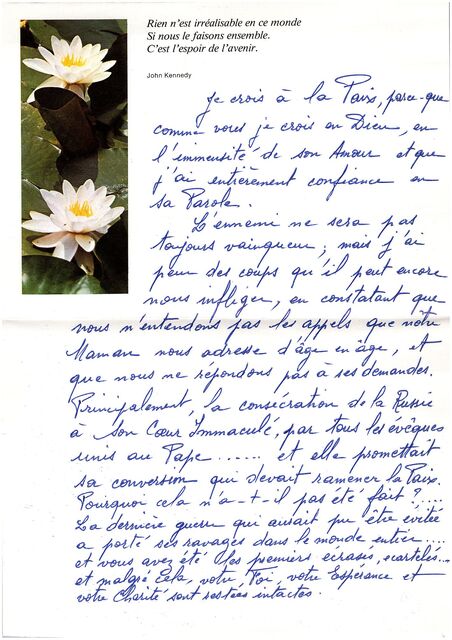 Rien n'est irréalisable en ce monde
Si nous le faisons ensemble.
C'est l'espoir de l'avenir.
John Kennedy
Je crois à la Paix, parce-que
comme vous je crois en Dieu, en
l'immensité de son Amour et que
j'ai entièrement confiance en
sa Parole.
L'ennemi ne sera pas
toujours vainqueur; mais j'ai
peur des coups qu'il peut encore
nous infliger, en constatant que
nous n'entendons pas les appels que notre
Maman nous adresse d'âge en âge, et
que nous ne répondons pas à ses demandes.
Principalement, la consécration de la Russie
à son Cœur Immaculé, par tous les évêques
unis au Pape ...... et elle promettait
sa conversion qui devait ramener la Paix.
Pourquoi cela n'a-t-il pas été fait ?....
La dernière guerre qui aurait pu être évitée
a porté ses ravages dans le monde entier....
et vous avez été les premiers écrasés, écartelés...
et malgré Cela, votre Foi, votre Espérance et
votre Charité sont restées intactes.